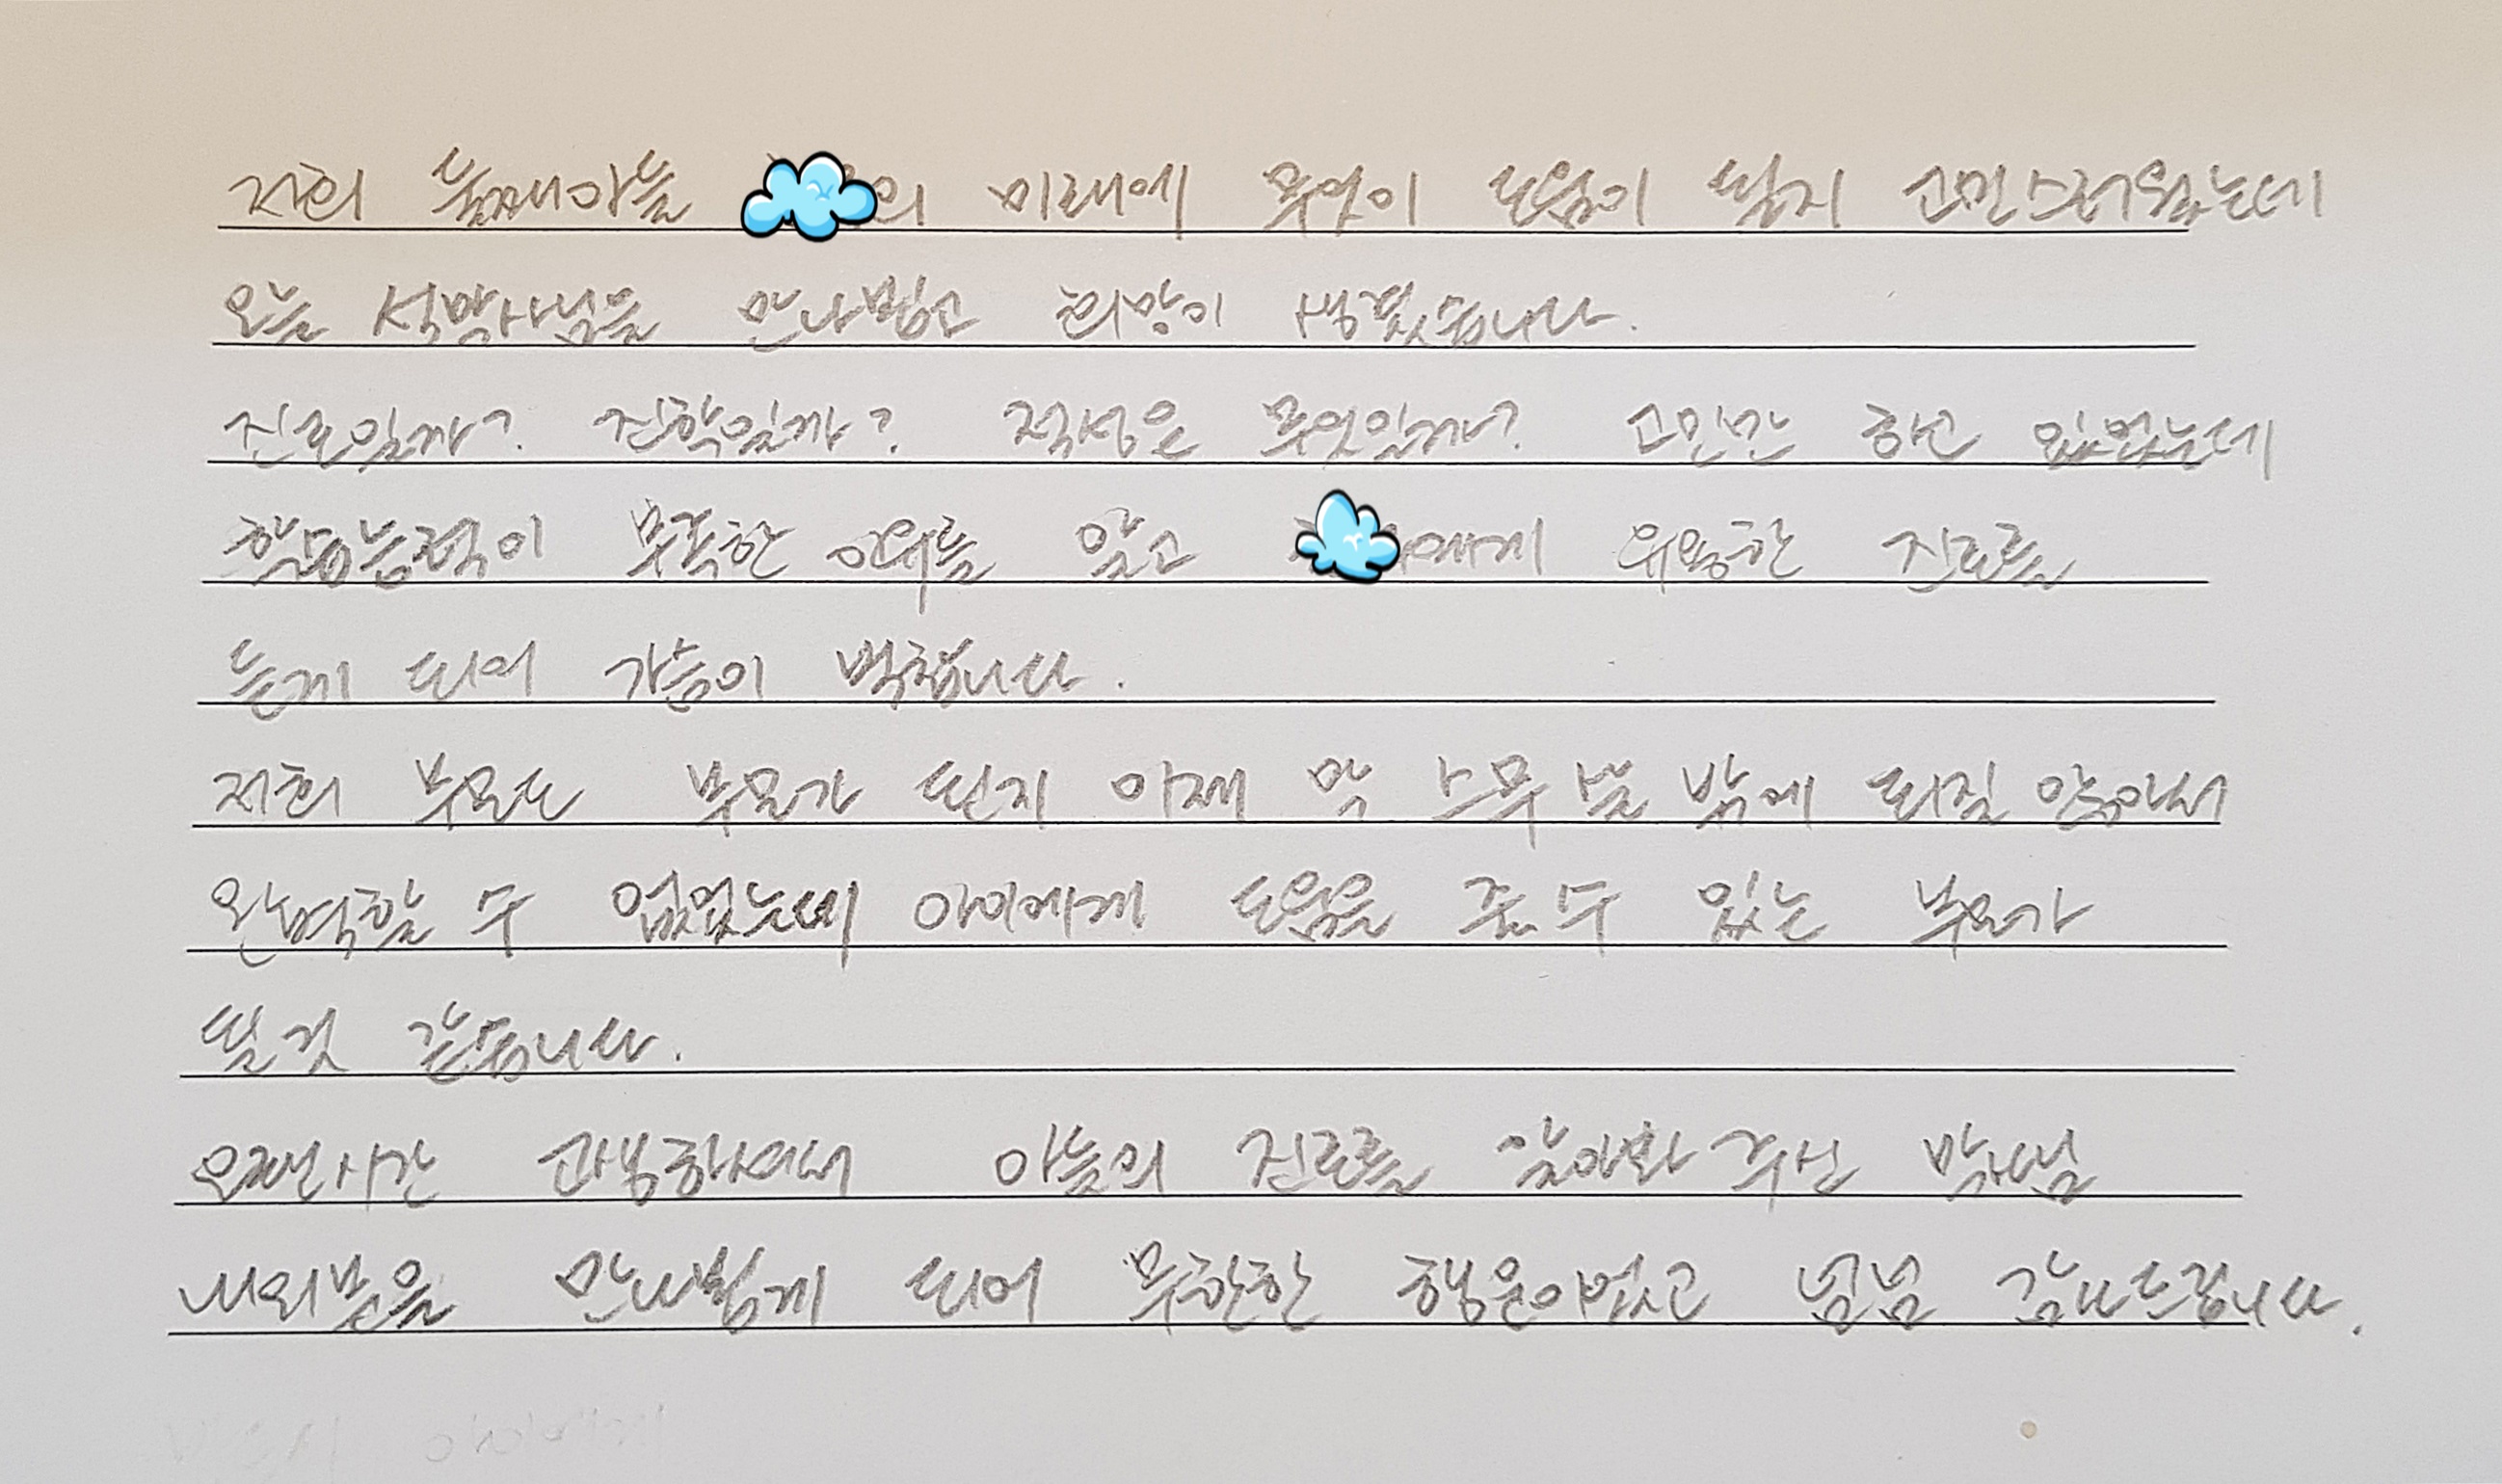 저희 둘째아들 의 미래에 무엇이 도움이 될지 고민스러웠는데
오늘 석박사님을 만나뵙고 희망이 생겼습니다.
진로일까? 진학일까? 적성은 무엇일까? 고민만 하고 있었는데
학습능력이 부족한 이유를 알고 에게 유용한 진로를
듣게 되어 가슴이 벅찹니다.
저희 부모도 부모가 된지 이제 막 스무 살 밖에 되질 않아서
완벽할 수 없었는데 아이에게 도움을 줄 수 있는 부모가
될 것 같습니다.
오랜시간 고생하셔서 아들의 진로를 알아봐 주신 박사님
내외분을 만나뵙게 되어 무한한 행운이었고 넘넘 감사드립니다.